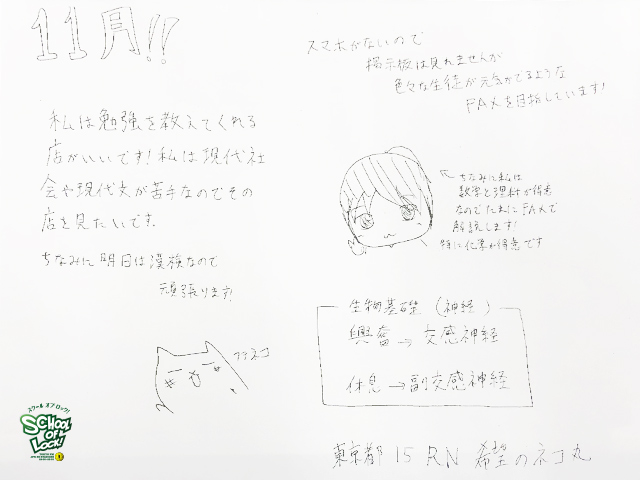 11月!!
私は勉強を教えてくれる
店がいいです!私は現代社
会や現代文が苦手なのでその
店を見たいです。
ちなみに明日は漢検なので
頑張ります!
ブサネコ
スクールオブロック!
SCHOOL OF LOCK!
スマホがないので
掲示板は見れませんが
色々な生徒が元気がでるような
FAXを目指しています!
ちなみに私は
数学と理科が得意
なのでたまにFAXで
解説します!
特に化学が得意です
生物基礎(神経)
興奮→交感神経
休息→副交感神経
東京都 15 RN 希望のネコ丸